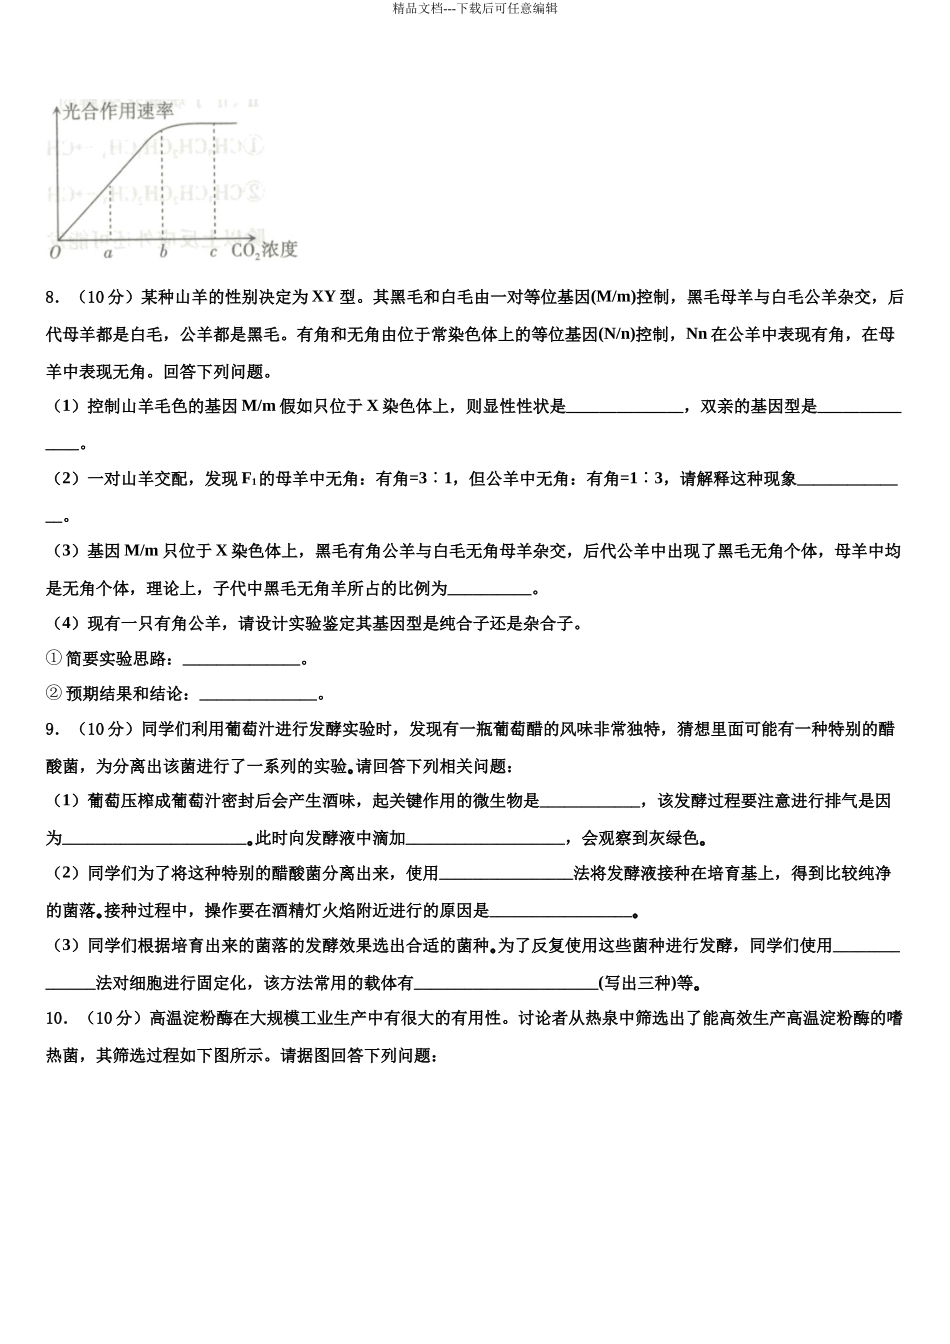 精品文档---下载后可任意编辑
光合作用速率
O a b c CO₂浓度
8．（10 分）某种山羊的性别决定为 XY 型。其黑毛和白毛由一对等位基因(M/m)控制，黑毛母羊与白毛公羊杂交，后
代母羊都是白毛，公羊都是黑毛。有角和无角由位于常染色体上的等位基因(N/n)控制，Nn 在公羊中表现有角，在母
羊中表现无角。回答下列问题。
（1）控制山羊毛色的基因 M/m 假如只位于 X 染色体上，则显性性状是______________，双亲的基因型是__________
____。
（2）一对山羊交配，发现 F₁ 的母羊中无角：有角=3∶1，但公羊中无角：有角=1∶3，请解释这种现象____________
__。
（3）基因 M/m 只位于 X 染色体上，黑毛有角公羊与白毛无角母羊杂交，后代公羊中出现了黑毛无角个体，母羊中均
是无角个体，理论上，子代中黑毛无角羊所占的比例为__________。
（4）现有一只有角公羊，请设计实验鉴定其基因型是纯合子还是杂合子。
①简要实验思路：______________。
②预期结果和结论：______________。
9．（10 分）同学们利用葡萄汁进行发酵实验时，发现有一瓶葡萄醋的风味非常独特，猜想里面可能有一种特别的醋
酸菌，为分离出该菌进行了一系列的实验。请回答下列相关问题：
（1）葡萄压榨成葡萄汁密封后会产生酒味，起关键作用的微生物是____________，该发酵过程要注意进行排气是因
为______________________。此时向发酵液中滴加___________________，会观察到灰绿色。
（2）同学们为了将这种特别的醋酸菌分离出来，使用________________法将发酵液接种在培育基上，得到比较纯净
的菌落。接种过程中，操作要在酒精灯火焰附近进行的原因是_________________。
（3）同学们根据培育出来的菌落的发酵效果选出合适的菌种。为了反复使用这些菌种进行发酵，同学们使用________
______法对细胞进行固定化，该方法常用的载体有______________________(写出三种)等。
10．（10 分）高温淀粉酶在大规模工业生产中有很大的有用性。讨论者从热泉中筛选出了能高效生产高温淀粉酶的嗜
热菌，其筛选过程如下图所示。请据图回答下列问题：